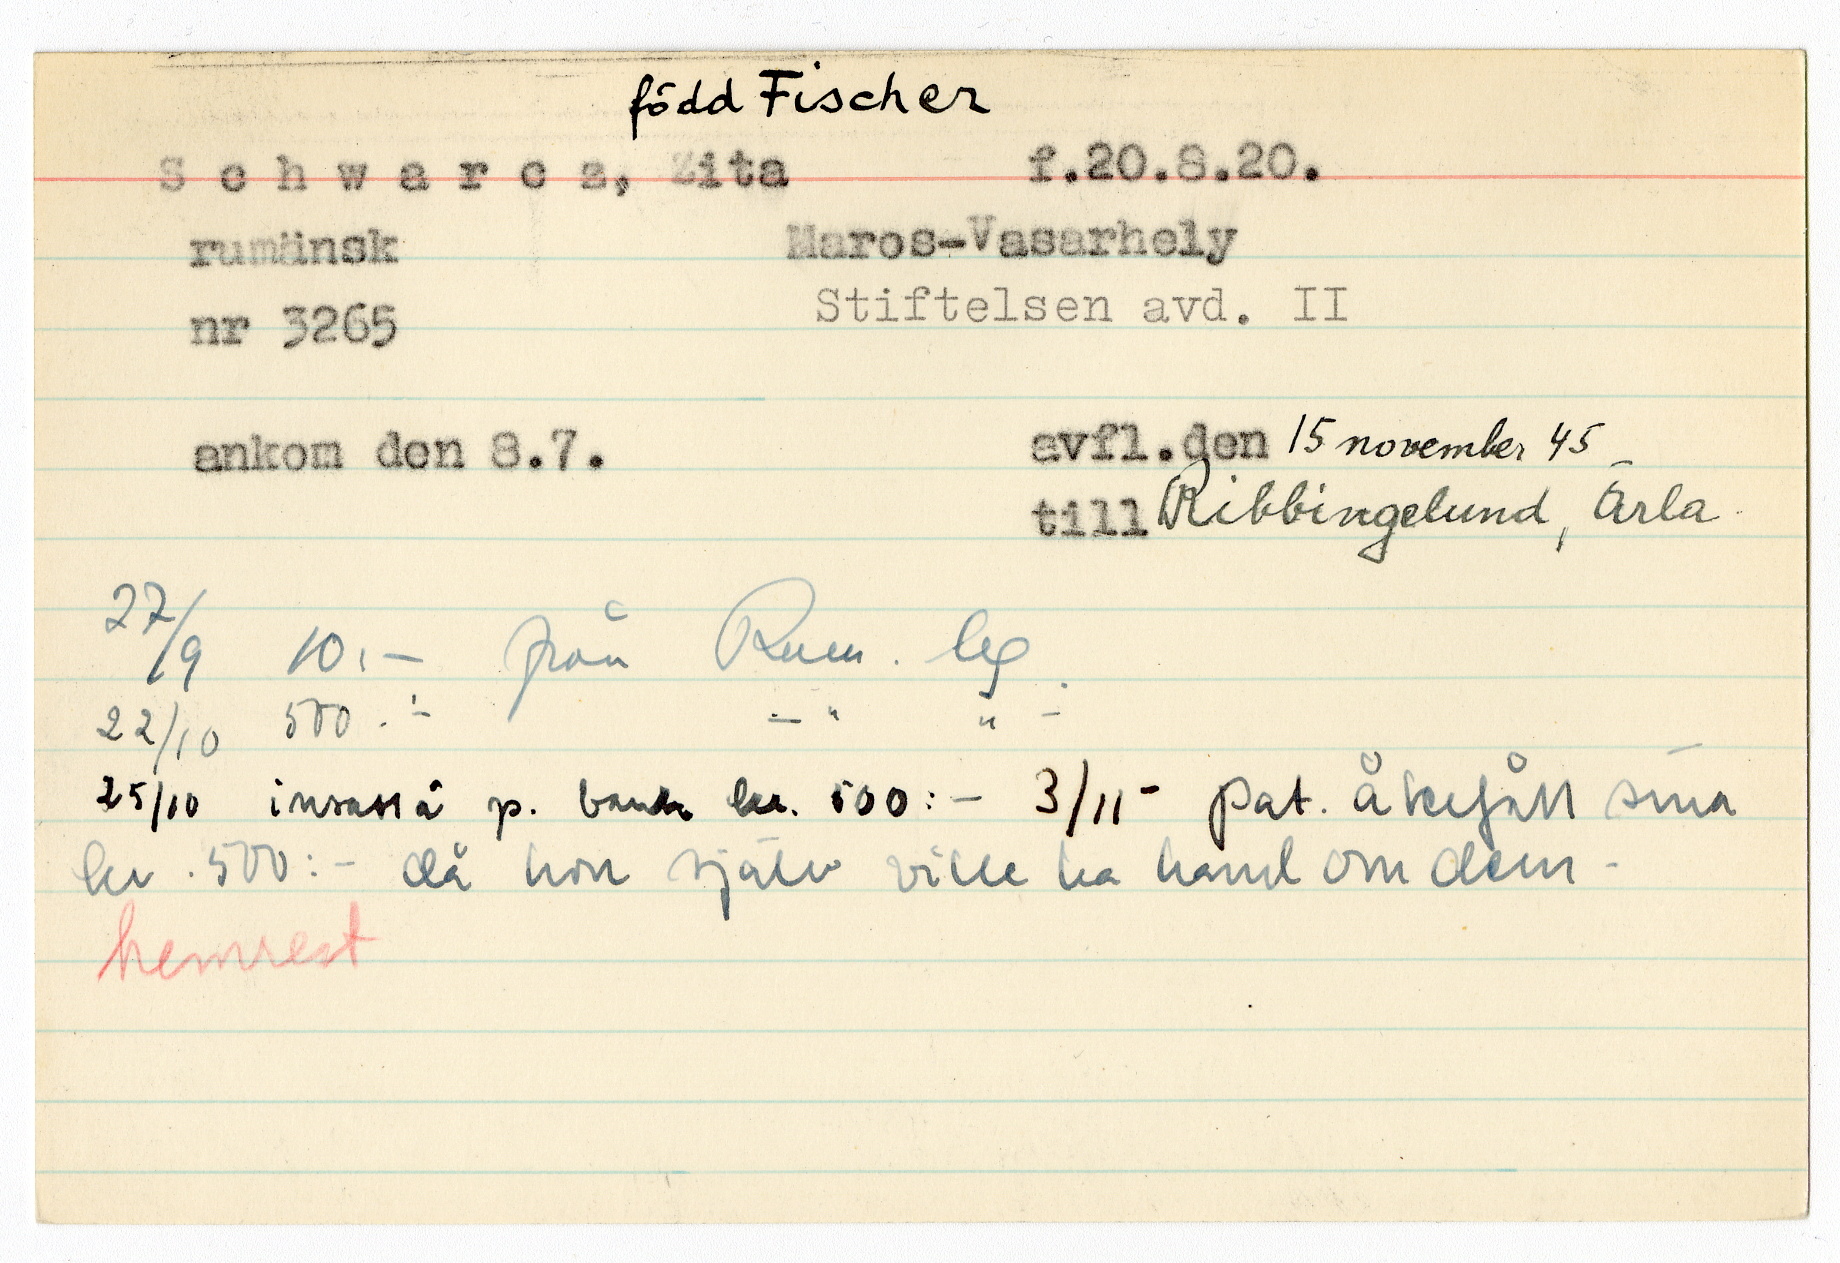 född Fischer
S c h w a r c z, Zita f.20.8.20.
rumänsk Maros-Vasarhely
nr 3265 Stiftelsen avd. II
ankom den 8.7. avfl.den 15 november 45
till Ribbingelund, Ärla
27/9 10.- från Rum. leg.
22/10 500.- -" "-
25/10 insatta p. bank kr. 500:- 3/11- pat. återfått sina
kr. 500:- då hon själv ville ha hand om dem.
hemrest